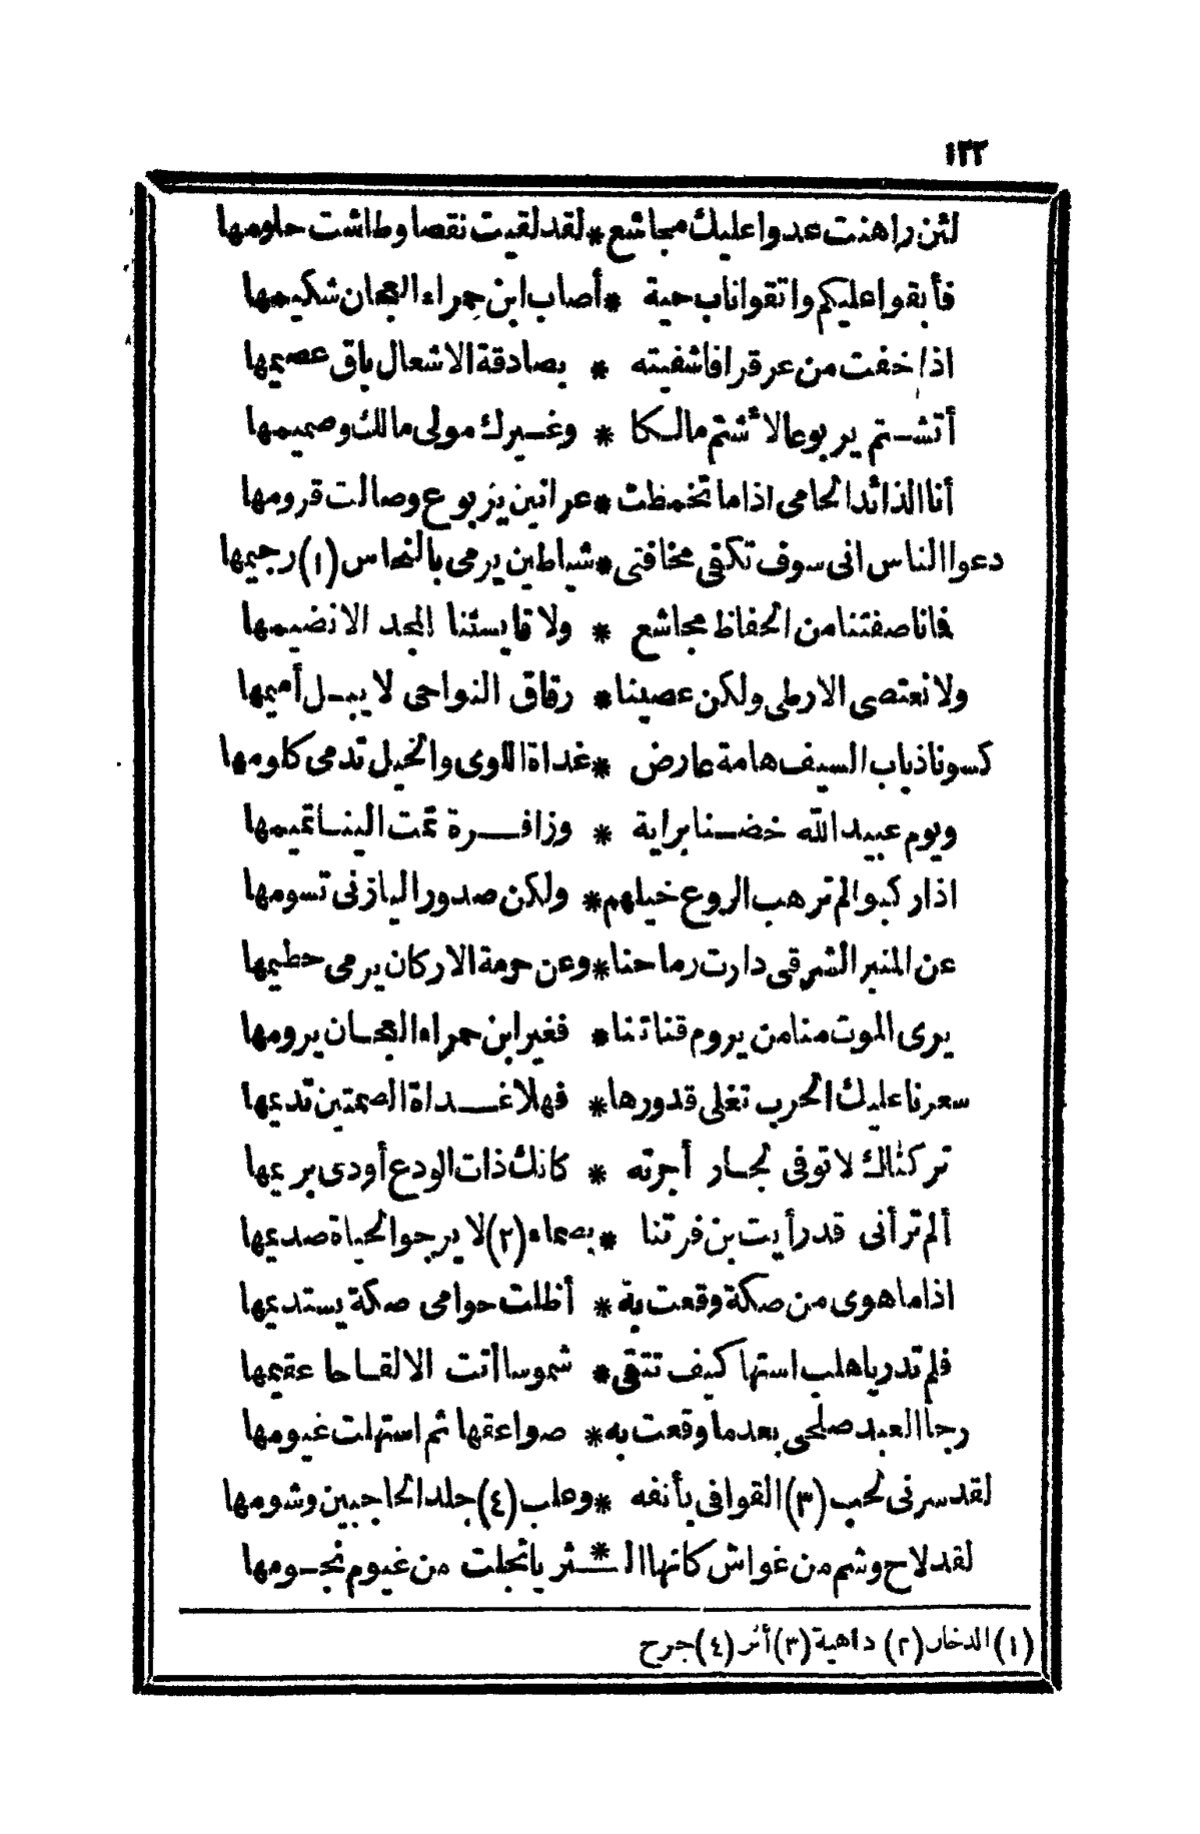 ١٣٣
لئن راهنت عدوا عليك مجاشع * لقد لقيت نقصا وطاشت حلومها
فأبقوا عليكم واتقوا ناب حية * أصاب ابن حمراء العجان شكيمها
اذا خفت من عر قرافا شفيته * بصادقة الاشعال باق عصيمها
أتشتم يربوعا لأشتم مالكا * وغيرك مولى مالك وصميمها
أنا الذائد الحامى اذا ما تخمطت * عرانين يربوع وصالت قرومها
دعوا الناس انى سوف تكفى مخافتى * شياطين يرمى بالنحاس (١) رجيمها
فما ناصفتنا من الحفاظ مجاشع * ولا قايستنا المجد الا نضيمها
ولا نعتصى الارطى ولكن عصينا * رقاق النواحى لا يبل أميمها
كسونا ذباب السيف هامة عارض * غداة اللوى والخيل تدمى كلومها
ويوم عبيد الله خضنا براية * وزافرة تمت الينا تميمها
اذا ركبوا لم ترهب الروع خيلهم * ولكن صدور اليازنى تسومها
عن المنبر الشرقى دارت رماحنا * وعن حرمة الاركان يرمى حطيمها
يرى الموت منا من يروم قناتنا * فغير ابن حمراء العجان يرومها
سعرنا عليك الحرب تغلى قدورها * فهلا غداة الصمتين تديمها
تركناك لا توفى لجار أجرته * كانك ذات الودع أودى بريمها
ألم تر أنى قد رأيت بن فرتنا * بصماء (٢) لا يرجو الحياة صديمها
اذا ما هوى من صكة وقعت به * أظلت حوامى صكة يستديمها
فلم تدر يا هلب استها كيف تتقى * شموسا أتت الا لقاحا عقيمها
رجا العبد صلحى بعد ما وقعت به * صواعقها ثم استهلت غيومها
لقد سرنى لحب (٣) القوافى بأنفه * وعلب (٤) جلد الحاجبين وشومها
لقد لاح وشم من غواش كانها * الثريا تجلت من غيوم نجومها
(١) الدخان (٢) داهية (٣) أثر (٤) جرح